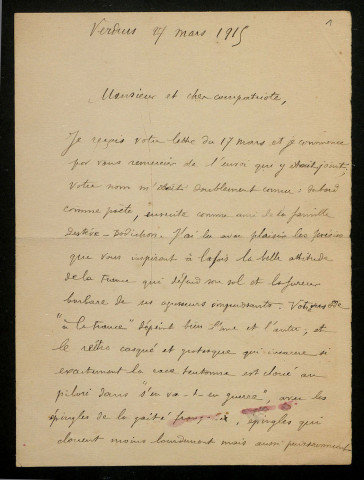 1
Verdun 27 mars 1915
Monsieur et cher compatriote,
Je reçois votre lettre du 17 mars et je commence
par vous remercier de l'envoi qui y était joint.
Votre nom m'était doublement connu : d'abord
comme poète, ensuite comme ami de la famille
J'ai lu avec plaisir les
que vous inspirent à la fois la belle attitude
de la France qui défend son sol et la fureur
barbare de ses agresseurs
"à la France" dépeint bien l'une et l'autre, et
le reître casqué et grotesque qui incarne si
exactement la race teutonne est cloué au
pilori dans "s'en va-t-en guerre", avec les
épingles de la gaîté française, épingles qui
clouent moins lourdement mais aussi puissamment